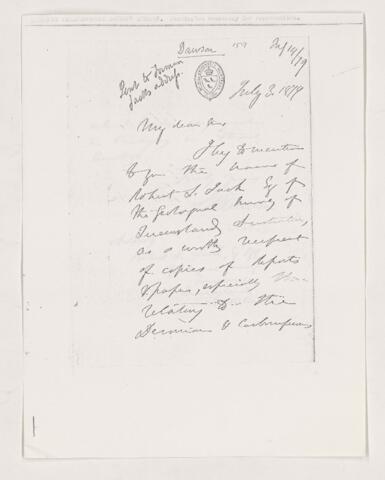 Dawson
157
July 14/79
Sent to Damon
Jacks address.
July 3. 1879
My dear Sir
I beg to mention
to you the name of
Robert L. Jack Esq of
the Geological Survey of
Queensland Australia,
as a worthy recipient
of copies of Reports
& papers, especially those
relating to the
Devonian & Carboniferous